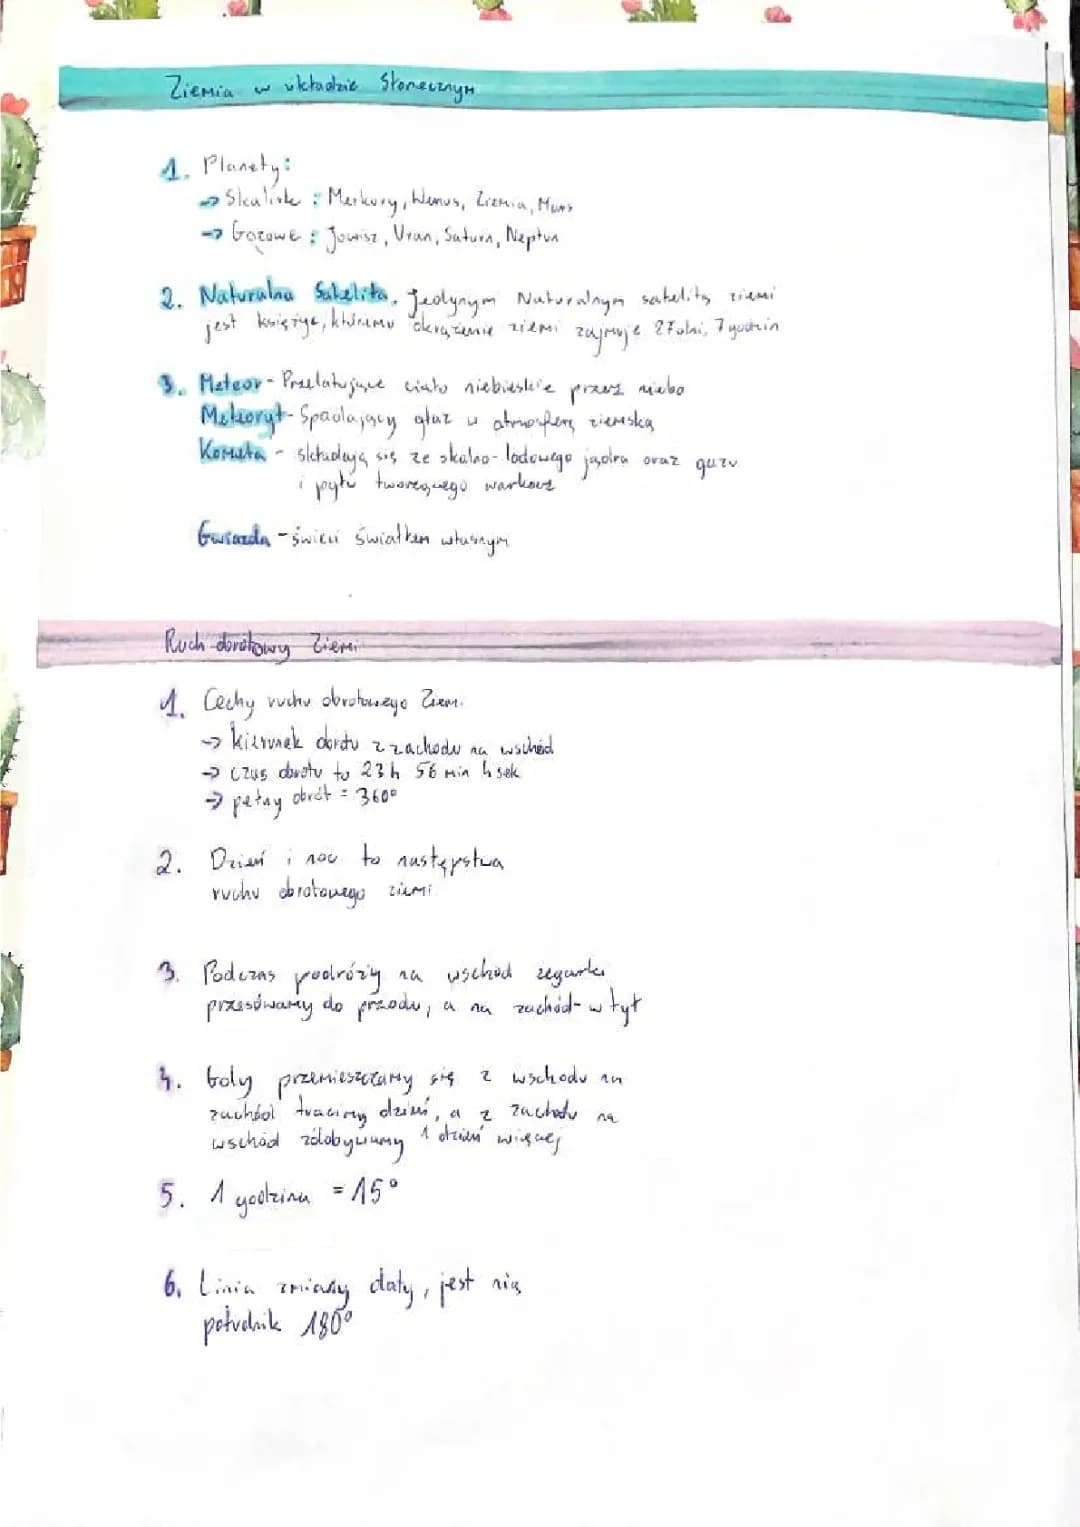 Ziemia w układzie Słonecznym
1. Planety:
→ Skaliste : Merkury, Wenus, Ziemia, Mars
→ Gazowe : Jowisz, Uran, Saturn, Neptun
2. Naturalna Satelita. Jedynym Naturalnym satelitą ziemi
jest księżyc, któremu okrążenie ziemi zajmuje 27dni, 7 godzin
3. Meteor - Przelatujące ciało niebieskie przez niebo
Meteoryt - Spadający głaz w atmosferę ziemską
Kometa - składają się ze skalno-lodowego jądra oraz gazu
i pyłu tworzącego warkocz
Gwiazda - świeci światłem własnym
Ruch obrotowy Ziemi
1. Cechy ruchu obrotowego Ziemi
→ kierunek obrotu z zachodu na wschód
→ czas obrotu to 23h 56 min 4 sek
→ pełny obrót = 360°
2. Dzień i noc to następstwa
ruchu obrotowego ziemi
3. Podczas podróży na wschód zegarki
przesówamy do przodu, a na zachód - w tył
4. Gdy przemieszczamy się z wschodu na
zachód tracimy dzień, a z zachodu na
wschód zdobywamy 1 dzień więcej
5. 1 godzina = 15°
6. Linia zmiany daty, jest nią
południk 180°